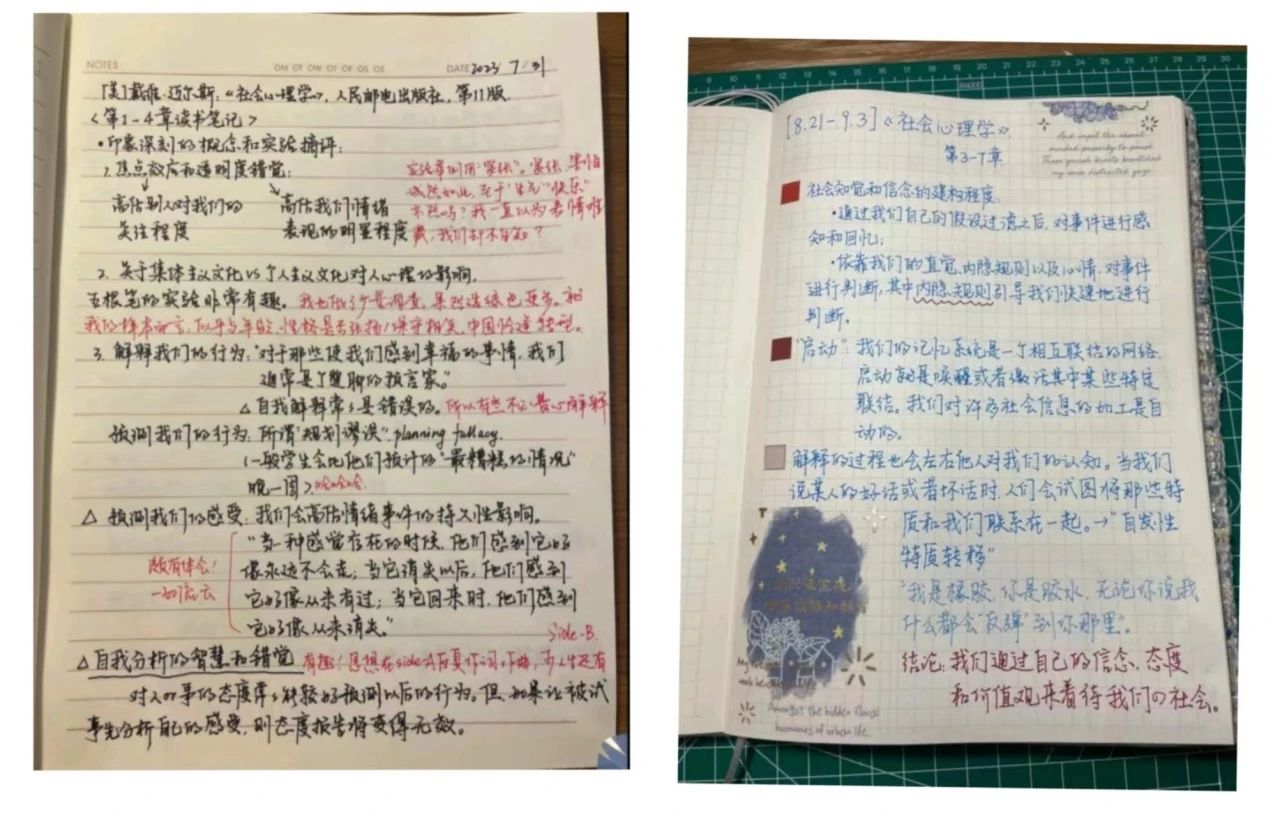 NOTES
DATE 2023 7/31
[美]戴维·迈尔斯:《社会心理学》,人民邮电出版社,第11版.
<第1-4章读书笔记>
•印象深刻的概念和实验摘评:
1.焦点效应和透明度错觉:
高估别人对我们的
关注程度
高估我们情绪
表现的明显程度
实验举例用"紧张"。紧张、害怕
诚然如此,至于"生气""快乐"
亦然吗?我一直以为表情难
藏,我们却不自知?
2. 关于集体主义文化VS个人主义文化对人心理的影响,
五根笔的实验非常有趣。我也做了少量调查,
我的样本而言,似乎与年龄、性格是否张扬/保守相关,中国
3. 解释我们的行为:"对于那些使我们感到幸福的事情,我们
通常是个蹩脚的预言家。"
△自我解释常常是错误的。所以有些不必费心解释
预测我们的行为:所谓"规划谬误".planning fallacy.
(一般学生会比他们预计的"最糟糕的情况"
晚一周).哈哈哈.
△ 预测我们的感受:我们会高估情绪事件的持久性影响。
"当一种感觉存在的时候,他们感到它好
像永远不会走;当它消失以后,他们感到
它好像从来有过;当它回来时,他们感到
它好像从来消失。"
颇有体会!
一如流云
Side-B.
△自我分析的智慧和错觉 有趣!
对人or事的态度常常能较好预测以后的行为。但,如果让被试
事先分析自己的感受,则态度报告将变得无效。
[8.21-9.3]《社会心理学》
第3-7章
社会知觉和信念的建构程度:
•通过我们自己的假设过滤之后,对事件进行感
知和回忆;
•依靠我们的直觉、内隐规则以及心情,对事件
进行判断,其中内隐规则引导我们快速地进行
判断。
"启动":我们的记忆系统是一个相互联结的网络.
启动就是唤醒或者激活其中某些特定
联结。我们对许多社会信息的加工是自
动的。
解释的过程也会左右他人对我们的认知。当我们
说某人的好话或者坏话时,人们会试图将那些特
质和我们联系在一起。→"自发性
特质转移"
"我是橡胶,你是胶水,无论你说我
什么都会'反弹'到你那里"。
结论:我们通过自己的信念、态度
和价值观来看待我们の社会。
Amongst the hidden floral
harmonies of urban life.